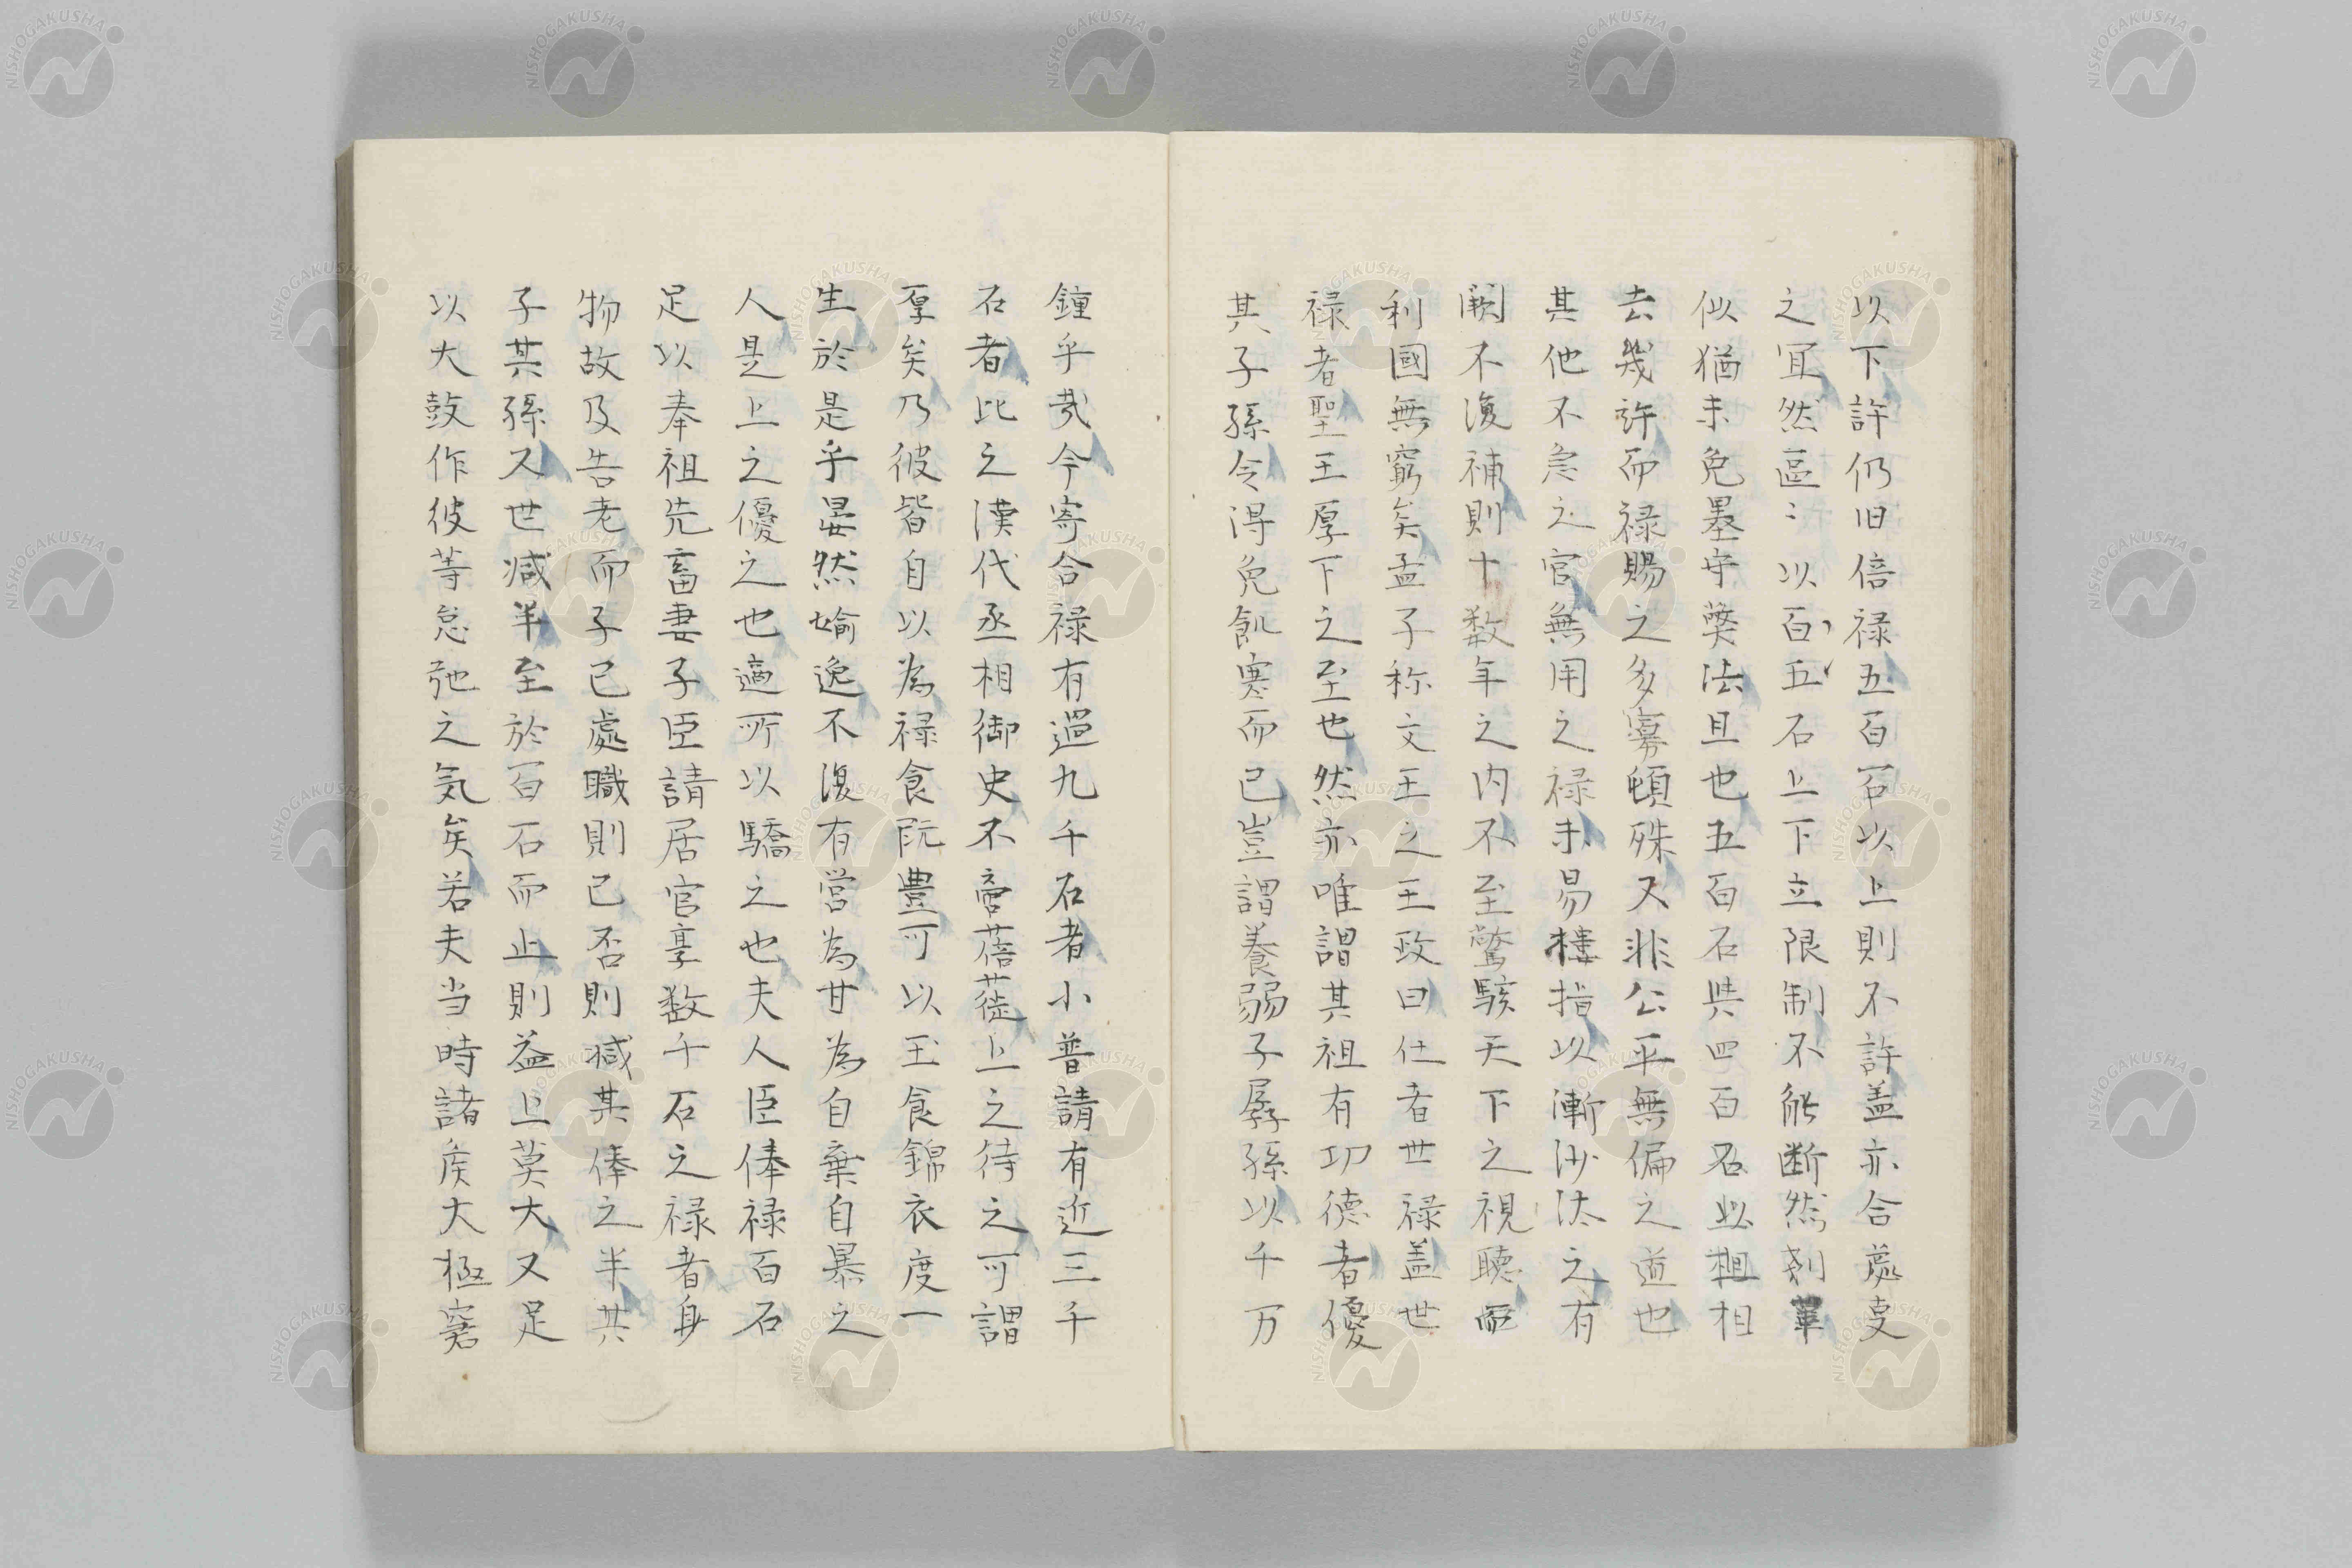 以下許仍旧倍禄五百石以上則不許盖亦合處変
之宜然區〻以百五石上下立限制不能断然剗革
似猶未免墨守獘法且也五百石與四百石必相
去幾許而禄賜之多寡頓殊又非公平無偏之道也
其他不急之官無用之禄未易摟指以漸沙汰之有
闕不復補則十数年之内不至驚駭天下之視聴而
利國無窮矣孟子称文王之王政曰仕者世禄盖世
禄者聖王厚下之至也然亦唯謂其祖有功徳者優
其子孫令得免飢寒而已豈謂養弱子孱孫以千万
鍾乎哉今寄合禄有過九千石者小普請有近三千
石者比之漢代丞相御史不啻蓓蓰上之待之可謂
厚矣乃彼皆自以為禄食既豊可以玉食錦衣度一
生於是乎晏然媮逸不復有営為甘為自棄自暴之
人是上之優之也適所以驕之也夫人臣俸禄百石
足以奉祖先畜妻子臣請居官享数千石之禄者身
物故及告老而子已處職則已否則減其俸之半其
子其孫又世減半至於百石而止則益上莫大又足
以大鼓作彼等怠弛之気矣若夫当時諸侯大極窘
NISHOGAKUSHA